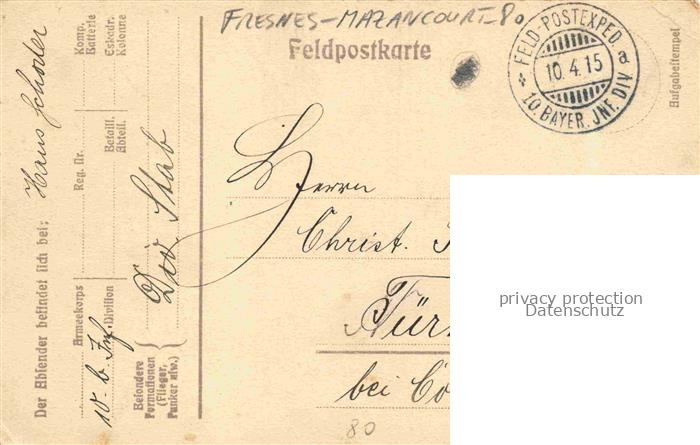 FRESNES-MAZANCOURT-80
Feldpostkarte
FELD-POSTEXPED.
a
10.4.15
10. BAYER. JNF. DIV
Aufgabestempel
Der Absender befindet sich bei:
Armeekorps
Division
Reg. Nr.
Bataill.
Abteil.
Komp.
Batterie
Eskadr.
Kolonne
Besondere
Formationen
(Flieger,
Funker usw.)
Div. Stab
Herrn
Christ.
bei Co
80
privacy protection
Datenschutz